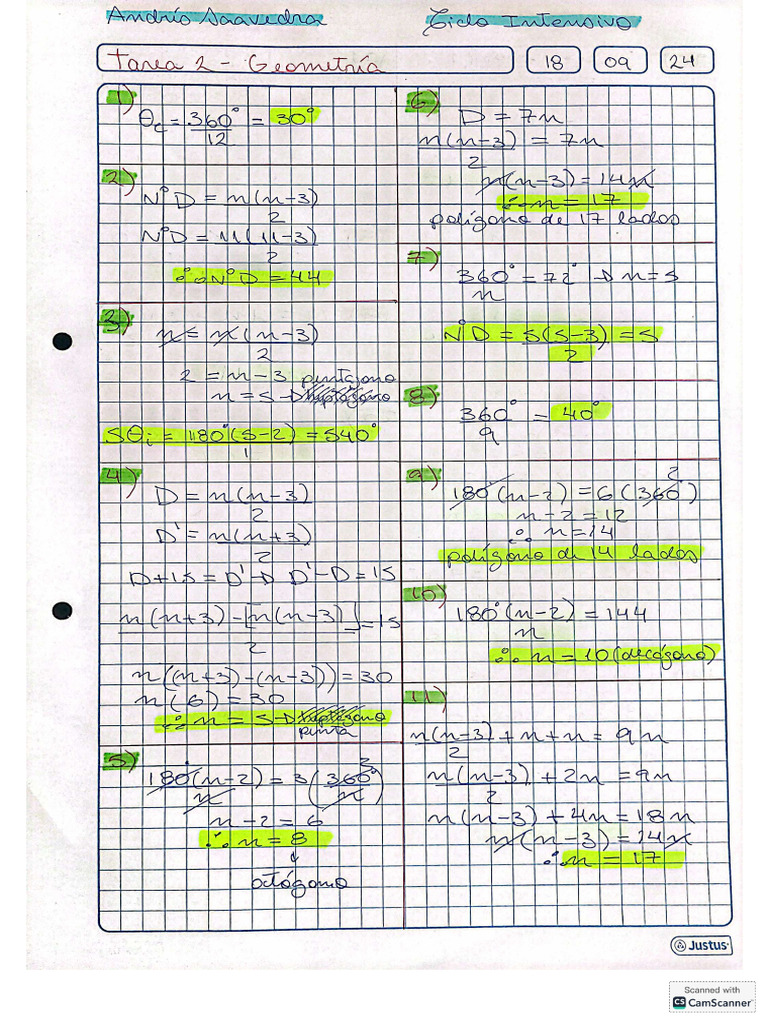 Andrío Saavedra
Ciclo Intensivo
Tarea 2 - Geometría
18 09 24
1)
θc = 360° = 30°
12
2)
N°D = n(n-3)
2
N°D = 11(11-3)
2
∴ N°D = 44
3)
n = n(n-3)
2
2 = n-3 pentágono
n = 5 →
Sθi = 180°(5-2) = 540°
1
4)
D = n(n-3)
2
D' = n(n+3)
2
D+15 = D' → D'-D = 15
n(n+3) - [n(n-3)] = 15
2
n((n+3)-(n-3)) = 30
n(6) = 30
∴ n = 5 →
penta
5)
180°(n-2) = 3(360°) 2
n n
n-2 = 6
∴ n = 8
↓
octógono
6)
D = 7n
n(n-3) = 7n
2
n(n-3) = 14n
∴ n = 17
polígono de 17 lados
7)
360° = 72° → n = 5
n
N°D = 5(5-3) = 5
2
8)
360° = 40°
9
9)
2
180(n-2) = 6(360°)
n-2 = 12
∴ n = 14
polígono de 14 lados
10)
180°(n-2) = 144
n
∴ n = 10 (decágono)
11)
n(n-3) + n + n = 9n
2
n(n-3) + 2n = 9n
2
n(n-3) + 4n = 18n
n(n-3) = 14n
∴ n = 17
Justus
Scanned with
CS CamScanner